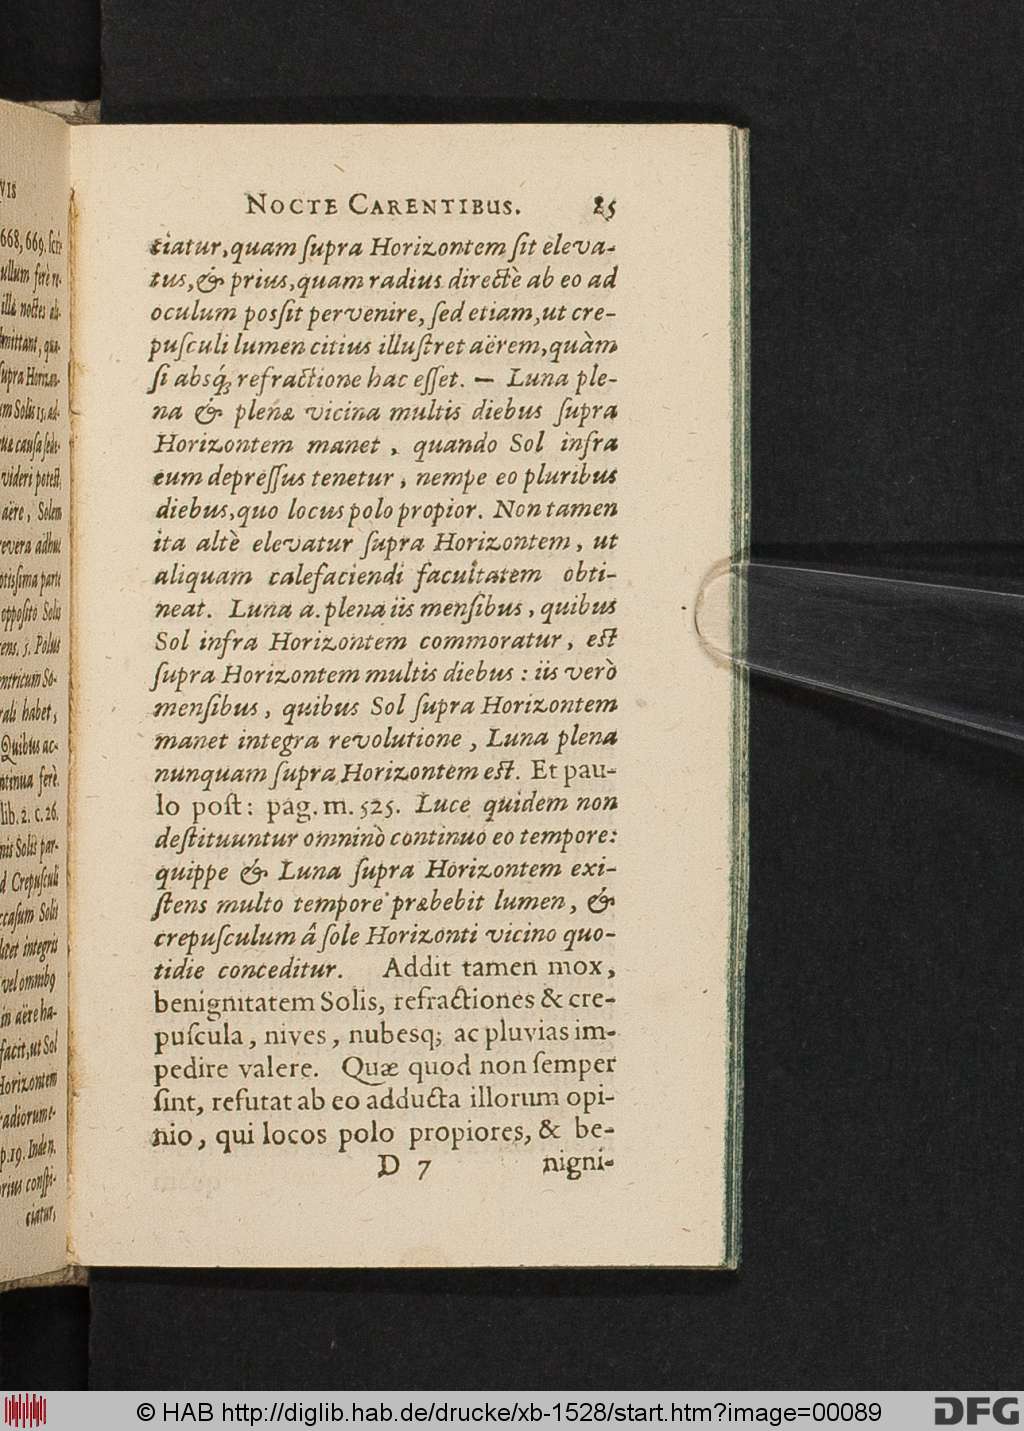 NOCTE CARENTIBUS. 85
ciatur, quam ſupra Horizontem ſit eleva-
tus, & prius, quam radius directè ab eo ad
oculum posſit pervenire, ſed etiam, ut cre-
puſculi lumen citius illuſtret aërem, quàm
ſi absq́ꝫ refractione hac eſſet. — Luna ple-
na & plenæ vicina multis diebus ſupra
Horizontem manet, quando Sol infra
eum depreſſus tenetur, nempe eo pluribus
diebus, quo locus polo propior. Non tamen
ita altè elevatur ſupra Horizontem, ut
aliquam calefaciendi facultatem obti-
neat. Luna a. plena iis menſibus, quibus
Sol infra Horizontem commoratur, eſt
ſupra Horizontem multis diebus: iis verò
menſibus, quibus Sol ſupra Horizontem
manet integra revolutione, Luna plena
nunquam ſupra Horizontem eſt. Et pau-
lo poſt: pag. m. 525. Luce quidem non
deſtituuntur omninò continuo eo tempore:
quippe & Luna ſupra Horizontem exi-
ſtens multo tempore præbebit lumen, &
crepuſculum â ſole Horizonti vicino quo-
tidie conceditur. Addit tamen mox,
benignitatem Solis, refractiones & cre-
puſcula, nives, nubesq; ac pluvias im-
pedire valere. Quæ quod non ſemper
ſint, refutat ab eo adducta illorum opi-
nio, qui locos polo propiores, & be-
D 7 nigni-
VIS
668, 669. ſcri-
ullum ferè re-
illâ noctes ad-
mittant, qua-
ſupra Horizon-
um Solis 15. ad-
videri poteſt,
aëre, Solem
revera adhuc
potisſima parte
oppoſito Solis
5. Polus
ntricum So-
rali habet,
Quibus ac-
ntinua ferè.
lib. 2. c. 26.
nis Solis par-
d Crepuſculi
ccaſum Solis
integris
vel omnibꝰ
in aëre ha-
facit, ut Sol
Horizontem
radiorum e-
p. 19. Inde n.
prius conſpi-
ciatur,
© HAB http://diglib.hab.de/drucke/xb-1528/start.htm?image=00089
DFG